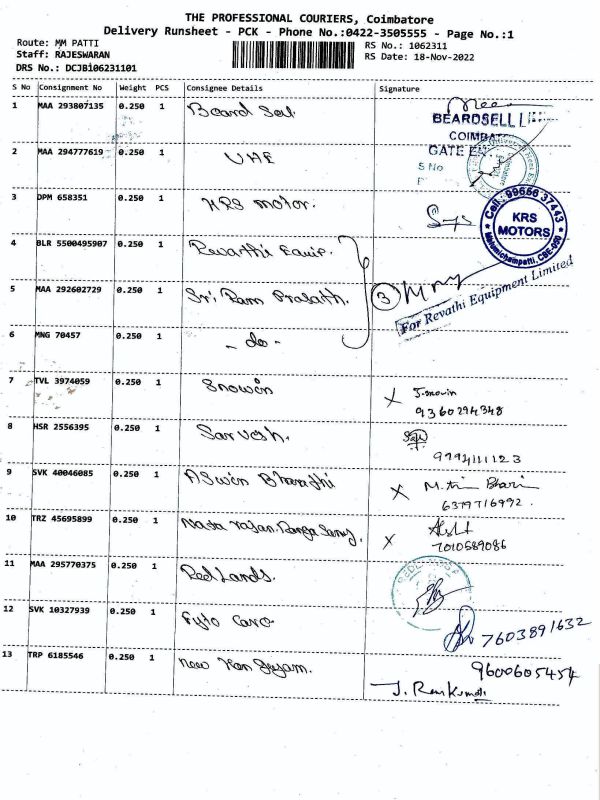 THE PROFESSIONAL COURIERS, Coimbatore
Delivery Runsheet - PCK - Phone No.:0422-3505555 - Page No.:1
Route: MM PATTI
RS No.: 1062311
Staff: RAJESWARAN
RS Date: 18-Nov-2022
DRS No.: DCJBi06231101
S No Consignment No Weight PCS Consignee Details Signature
1 MAA 293807135 0.250 1 Beard Sell
BEARDSELL
COIMBAT
GATE EN
S No
2 MAA 294777619 0.250 1 UAE
3 DPM 658351 0.250 1 KRS motor.
Cell: 99656 37443
KRS
MOTORS
Malumichampatti, CBE-050
4 BLR 5500495907 0.250 1 Revathi Equip.
5 MAA 292602729 0.250 1 Sri Ram Prasath.
3
For Revathi Equipment Limited
6 MNG 70457 0.250 1 - do -
7 TVL 3974059 0.250 1 Snowin
J.snowin
9360294348
8 HSR 2556395 0.250 1 Sarvesh.
9994111123
9 SVK 40046085 0.250 1 ASwin Bharathi
6379716992.
10 TRZ 45695899 0.250 1
7010589086
11 MAA 295770375 0.250 1 Red Lands.
12 SVK 10327939 0.250 1
7603891632
13 TRP 6185546 0.250 1 new
9600605454
J. Ramkumar